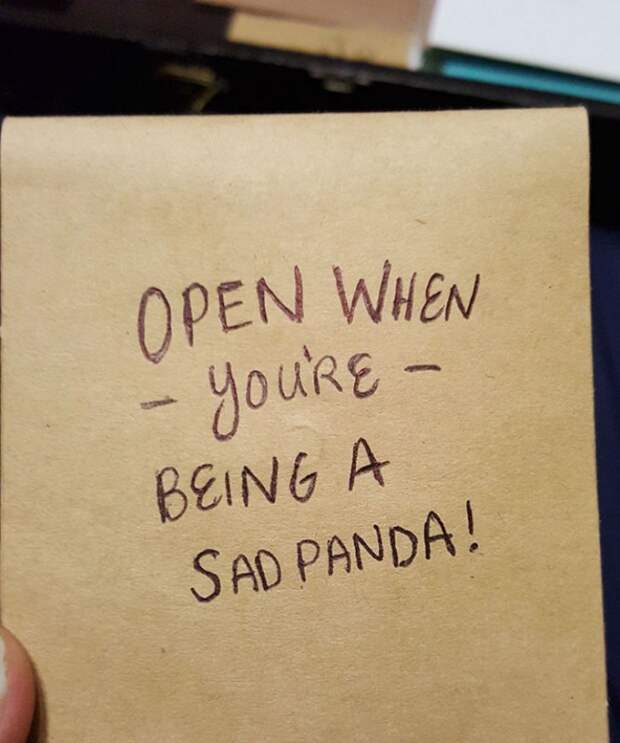 OPEN WHEN
- YOU'RE -
BEING A
SAD PANDA!